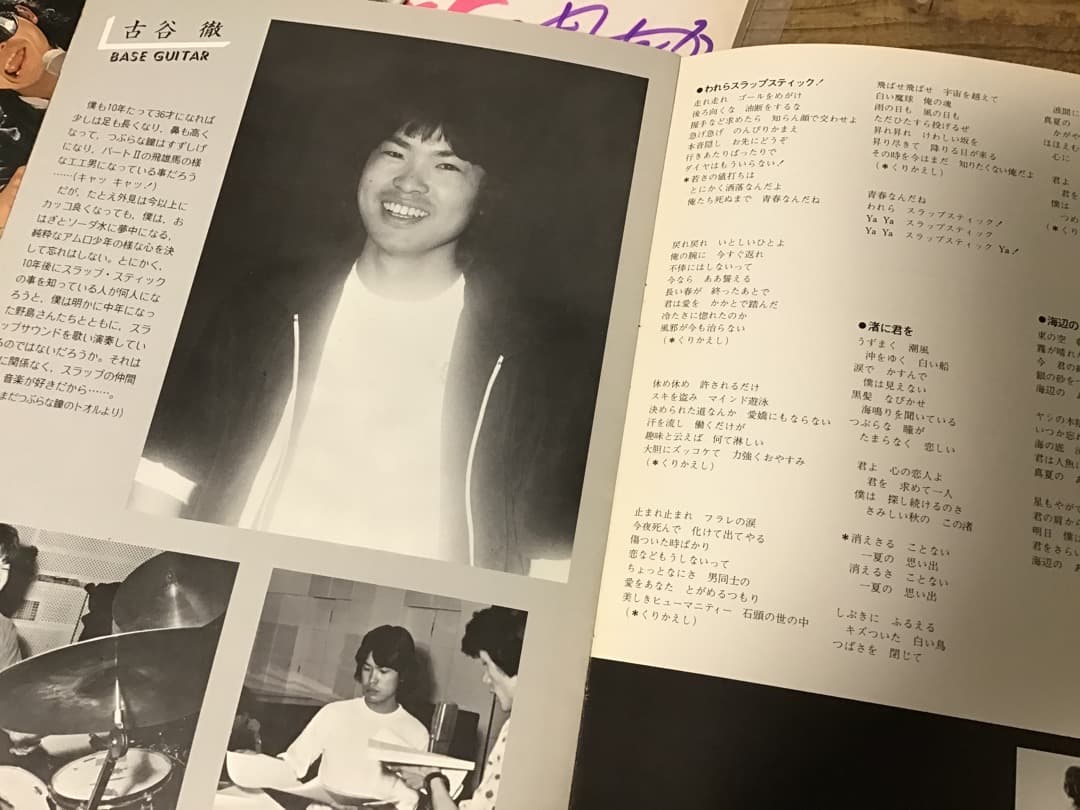 古谷 徹
BASE GUITAR
僕も10年たって36才になれば
少しは足も長くなり、鼻も高く
なって、つぶらな瞳はすずしげ
になり、パートⅡの飛雄馬の様
なエエ男になっている事だろう
……(キャッ キャッ!)
だが、たとえ外見は今以上に
カッコ良くなっても、僕は、お
はぎとソーダ水に夢中になる、
純粋なアムロ少年の様な心を決
して忘れはしない。とにかく、
10年後にスラップ・スティック
の事を知っている人が何人にな
ろうと、僕は明かに中年になっ
た野島さんたちとともに、スラ
ップサウンドを歌い演奏してい
るのではないだろうか。それは
に関係なく、スラップの仲間
音楽が好きだから……。
まだつぶらな瞳のトオルより)
●われらスラップスティック!
走れ走れ ゴールをめがけ
後ろ向くな 油断をするな
握手など求めたら 知らん顔で交わせよ
急げ急げ のんびりかまえ
本音隠し お先にどうぞ
行きあたりばったりで
ダイヤはもういらない!
*若さの値打ちは
とにかく洒落なんだよ
俺たち死ぬまで 青春なんだね
戻れ戻れ いとしいひとよ
俺の腕に 今すぐ返れ
不倖にはしないって
今なら ああ誓える
長い春が 終ったあとで
君は愛を かかとで踏んだ
冷たさに惚れたのか
風邪が今も治らない
(*くりかえし)
休め休め 許されるだけ
スキを盗み マインド遊泳
決められた道なんか 愛嬌にもならない
汗を流し 働くだけが
趣味と云えば 何て淋しい
大胆にズッコケて 力強くおやすみ
(*くりかえし)
止まれ止まれ フラレの涙
今夜死んで 化けて出てやる
傷ついた時ばかり
恋などもうしないって
ちょっとなにさ 男同士の
愛をあなた とがめるつもり
美しきヒューマニティー 石頭の世の中
(*くりかえし)
飛ばせ飛ばせ 宇宙を越えて
白い魔球 俺の魂
雨の日も 風の日も
ただひたすら投げるぜ
昇れ昇れ けわしい坂を
昇り尽きて 降りる日が来る
その時を今はまだ 知りたくない俺だよ
(*くりかえし)
青春なんだね
われら スラップスティック!
Ya Ya スラップスティック
Ya Ya スラップスティック Ya!
●渚に君を
うずまく 潮風
沖をゆく 白い船
涙で かすんで
僕は見えない
黒髪 なびかせ
海鳴りを聞いている
つぶらな 瞳が
たまらなく 恋しい
君よ 心の恋人よ
君を 求めて一人
僕は 探し続けるのさ
さみしい秋の この渚
*消えさる ことない
一夏の 思い出
消えるさ ことない
一夏の 思い出
しぶきに ふるえる
キズついた 白い鳥
つばさを 閉じて
真夏の
かがや
ほほえむ
心に
君よ
君を
僕は
つめ
(*くり
●海辺の
東の空
霧が晴れ
今 君の
銀の砂を
海辺の
ヤシの木
いつか忘れ
海の底
君は人魚に
真夏の
星もやがて
君の肩から
明日 僕に
君をさらい
海辺の